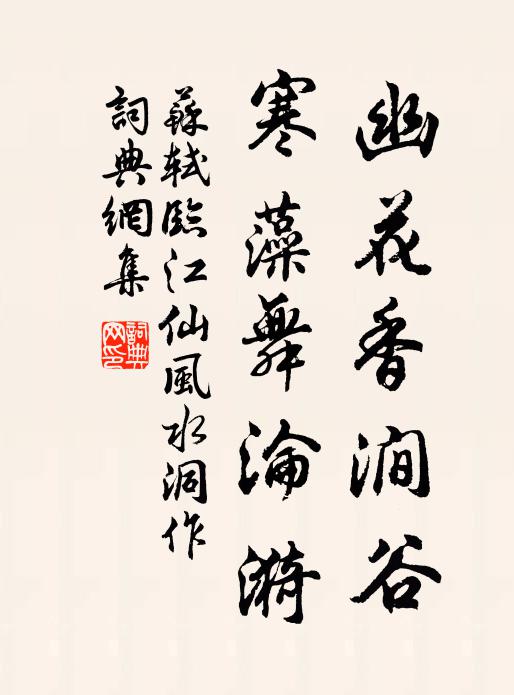 幽花香澗谷
寒藻舞淪漪
蘇軾臨江仙風水洞作
詞典網集
詞典
网印